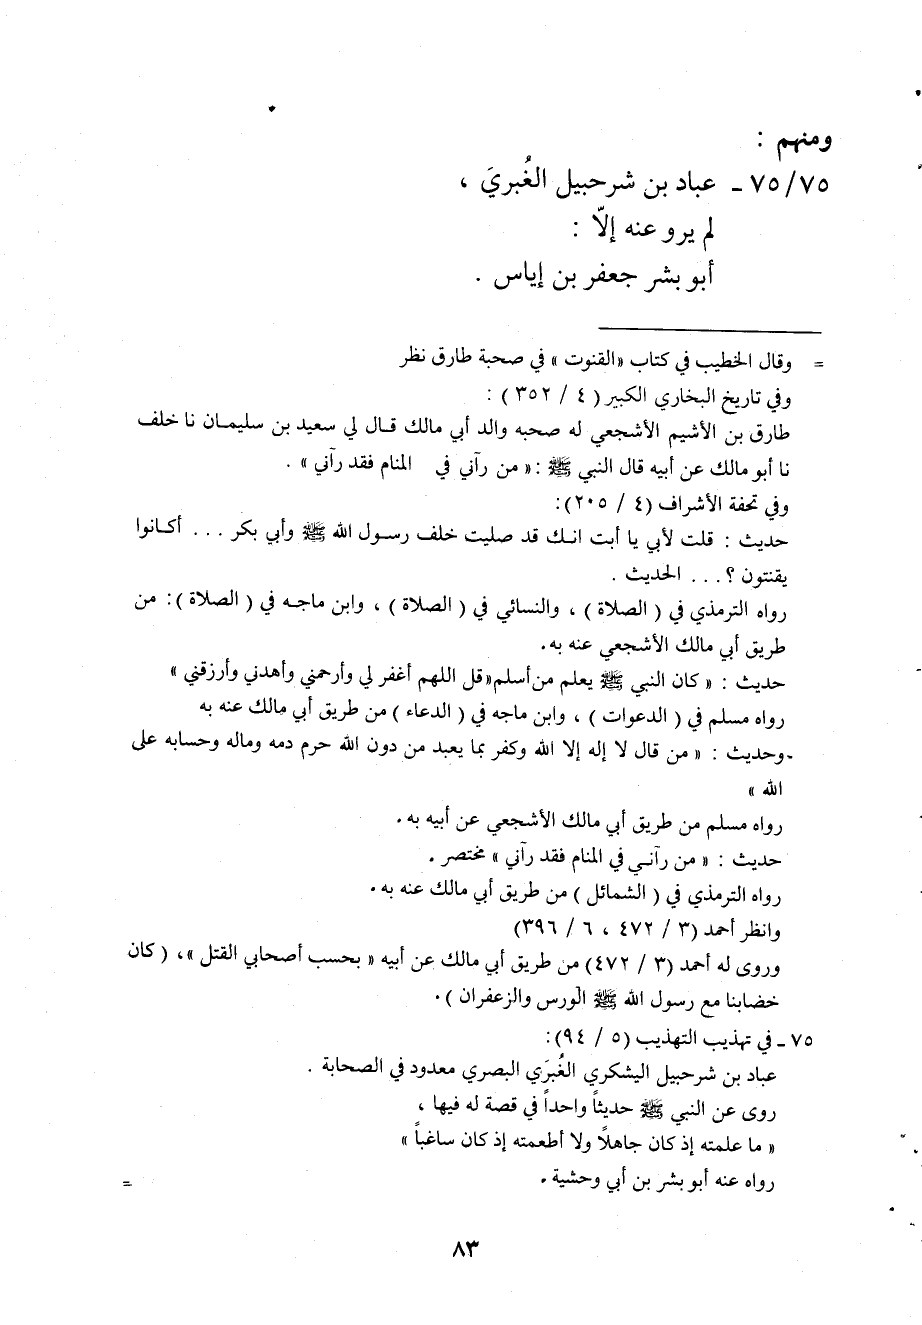 ومنهم :
٧٥/٧٥ - عباد بن شرحبيل الغُبريَ ،
لم يرو عنه إلاّ :
أبو بشر جعفر بن إياس .
= وقال الخطيب في كتاب «القنوت» في صحبة طارق نظر
وفي تاريخ البخاري الكبير ( ٤ / ٣٥٢ ) :
طارق بن الأشيم الأشجعي له صحبه والد أبي مالك قال لي سعيد بن سليمان نا خلف
نا أبو مالك عن أبيه قال النبي ﷺ : « من رآني في المنام فقد رآني » .
وفي تحفة الأشراف (٤ / ٢٠٥):
حديث : قلت لأبي يا أبت انك قد صليت خلف رسول الله ﷺ وأبي بكر . . . أكانوا
يقنتون ؟ . . . الحديث .
رواه الترمذي في ( الصلاة ) ، والنسائي في ( الصلاة ) ، وابن ماجه في ( الصلاة ) : من
طريق أبي مالك الأشجعي عنه به.
حديث : « كان النبي ﷺ يعلم من أسلم «قل اللهم أغفر لي وأرحمني وأهدني وأرزقني »
رواه مسلم في ( الدعوات ) ، وابن ماجه في ( الدعاء ) من طريق أبي مالك عنه به
.وحديث : « من قال لا إله إلا الله وكفر بما يعبد من دون الله حرم دمه وماله وحسابه على
الله »
رواه مسلم من طريق أبي مالك الأشجعي عن أبيه به .
حديث : « من رآني في المنام فقد رآني » مختصر .
رواه الترمذي في ( الشمائل ) من طريق أبي مالك عنه به .
وانظر أحمد (٣ / ٤٧٢ ، ٦ / ٣٩٦)
وروى له أحمد (٣ / ٤٧٢) من طريق أبي مالك عن أبيه « بحسب أصحابي القتل » ، ( كان
خضابنا مع رسول الله ﷺ الورس والزعفران ) .
٧٥ - في تهذيب التهذيب (٥ / ٩٤):
عباد بن شرحبيل اليشكري الغُبَري البصري معدود في الصحابة .
روى عن النبي ﷺ حديثاً واحداً في قصة له فيها ،
« ما علمته إذ كان جاهلاً ولا أطعمته إذ كان ساغباً »
رواه عنه أبو بشر بن أبي وحشية .
=
٨٣